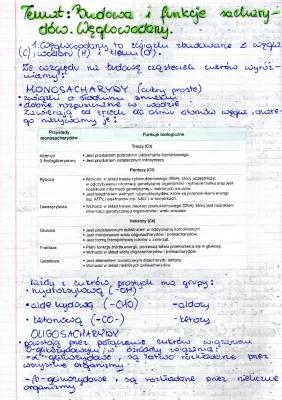 Temat: Budowa i funkcje sachary-
dów. Węglowodany.
1. Węglowodany to związki zbudowane z węgla
(C), wodoru (H) i tlenu (O).
Ze względu na budowę cząsteczek cukrów wyróż-
niamy:
MONOSACHARYDY (cukry proste)
• związki o słodkim smaku
• dobrze rozpuszczalne w wodzie
Zawierają od trzech do ośmiu atomów węgla
Przykłady monosacharydów
Funkcje biologiczne
Triozy (C3)
Aldehyd 3-fosfoglicerynowy
• Jest produktem pośrednim oddychania komórkowego.
• Jest produktem ostatecznym fotosyntezy.
Pentozy (C5)
Ryboza
• Wchodzi w skład kwasu rybonukleinowego (RNA), który uczestniczy
w odczytywaniu informacji genetycznej organizmów i syntezie białka oraz jest
nośnikiem informacji genetycznej u niektórych wirusów.
Deoksyryboza
• Wchodzi w skład kwasu deoksyrybonukleinowego (DNA), który jest nośnikiem
informacji genetycznej u organizmów i wielu wirusów.
Heksozy (C6)
Glukoza
• Jest podstawowym substratem w oddychaniu komórkowym.
• Jest monomerem wielu oligosacharydów i polisacharydów.
• Jest formą transportową cukrów u zwierząt.
Fruktoza
• Pełni funkcję źródła energii, ponieważ łatwo przekształca się w glukozę.
• Wchodzi w skład wielu oligosacharydów i polisacharydów.
Galaktoza
• Jest elementem budulcowym disacharydu laktozy.
• Wchodzi w skład niektórych polisacharydów.
Każdy z cukrów prostych ma grupę:
• hydroksylową (-OH)
• aldehydową (-CHO) - aldozy
• ketonową (-CO-) - ketozy
OLIGOSACHARYDY
• powstają przez połączenie cukrów wiązaniem
O-glikozydowym
- α - glikozydowe, są łatwo rozkładane przez
wszystkie organizmy
- β - glikozydowe, są rozkładane przez nieliczne
organizmy